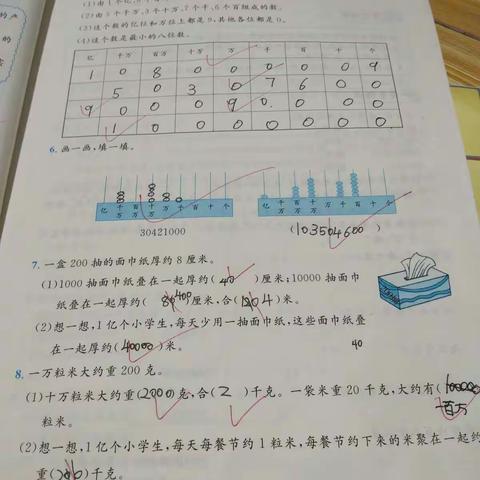 (2)由5个千万,3个十万,7个千,6个百组成的数。
(3)这个数的亿位和万位上都是9,其他各位都是0。
(4)这个数是最小的八位数。
亿 千万 百万 十万 万 千 百 十 个
1 0 8 0 0 0 0 0 9
5 0 3 0 7 6 0 0
9 0 0 0 9 0 0 0 0
1 0 0 0 0 0 0 0
6. 画一画,填一填。
亿 千万 百万 十万 万 千 百 十 个 亿 千万 百万 十万 万 千 百 十 个
30421000 (103504600)
7. 一盒 200 抽的面巾纸厚约 8 厘米。
(1)1000 抽面巾纸叠在一起厚约( 40 )厘米;10000 抽面巾
纸叠在一起厚约( 400 )厘米,合( 4 )米。
(2)想一想,1 亿个小学生,每天少用一抽面巾纸,这些面巾纸叠
在一起厚约(40000)米。
40
8. 一万粒米大约重 200 克。
(1)十万粒米大约重(2000)克,合( 2 )千克。一袋米重 20 千克,大约有(
百万
粒米。
(2)想一想,1 亿个小学生,每天每餐节约 1 粒米,每餐节约下来的米聚在一起约
重( )千克。